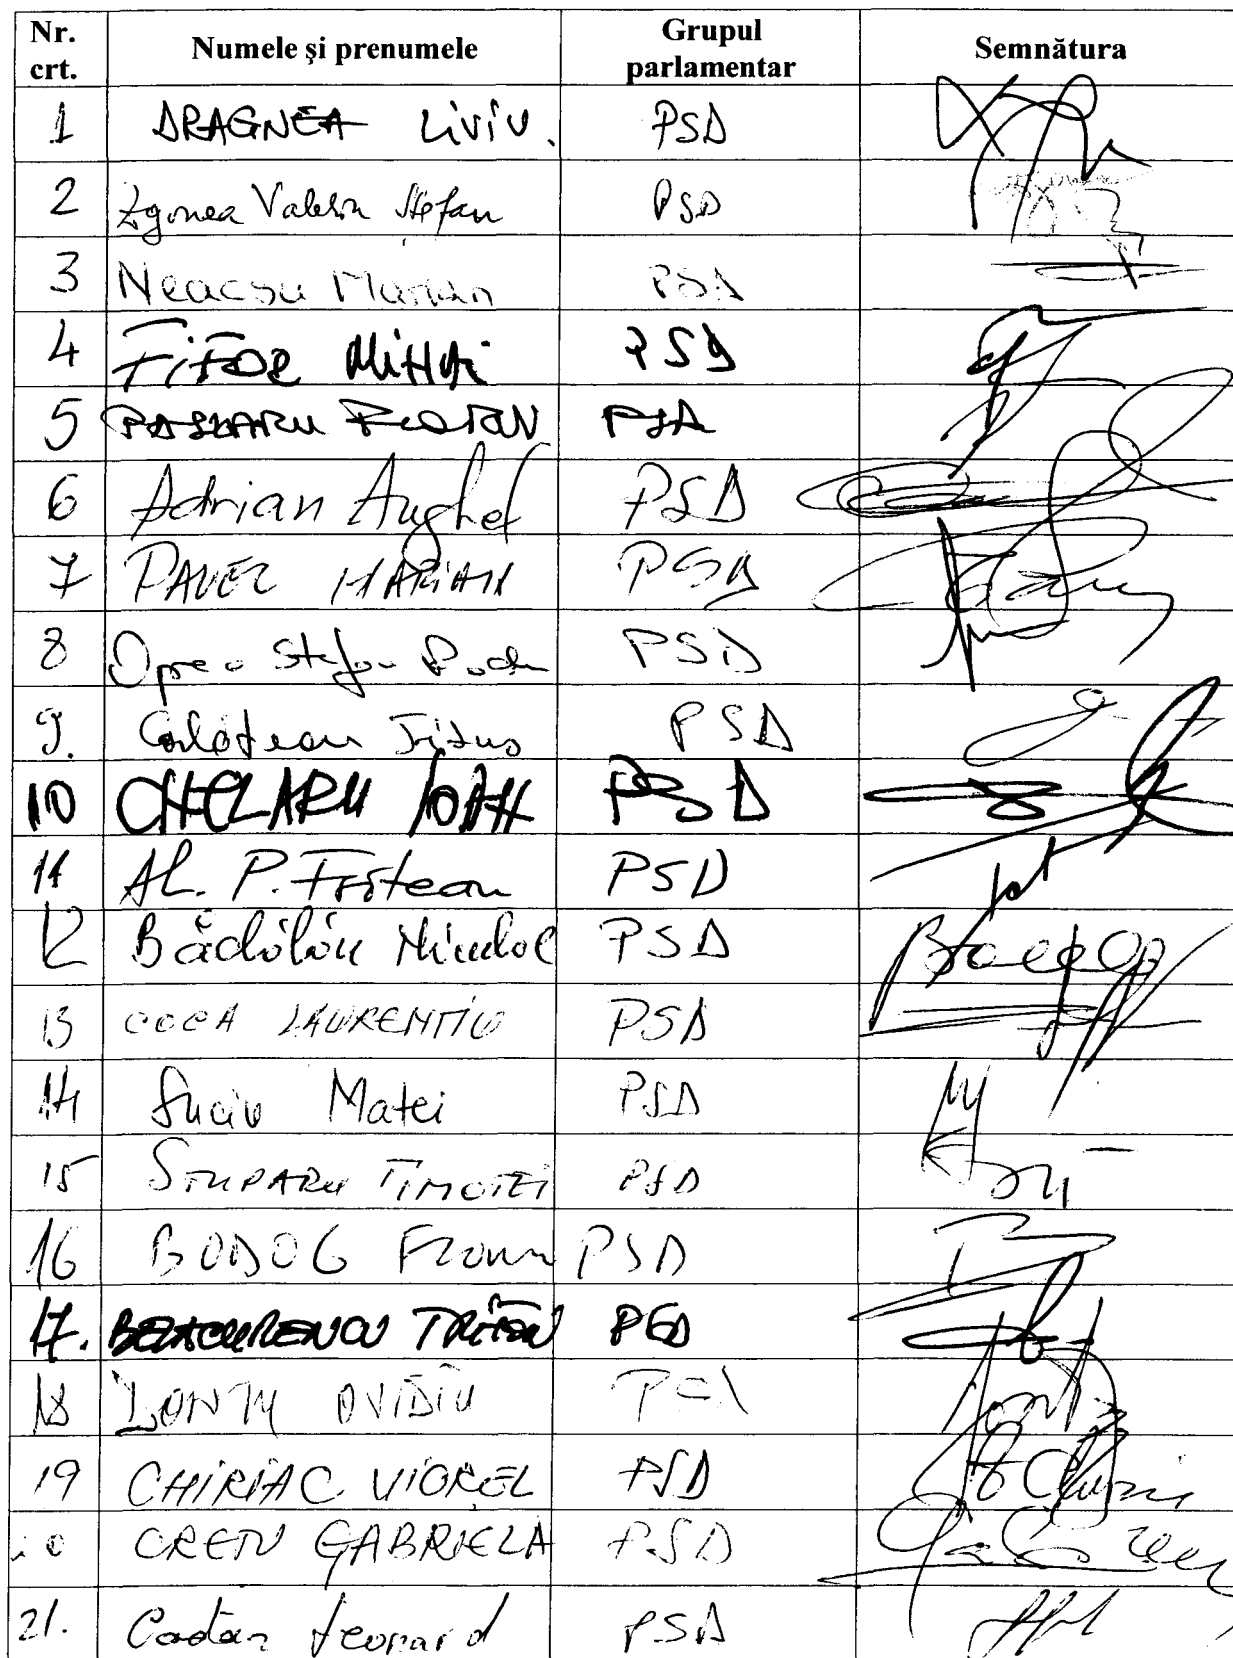 Nr. crt. Numele și prenumele Grupul parlamentar Semnătura
1 DRAGNEA LIVIU. PSD
2 Zgonea Valeriu Ștefan PSD
3 Neacșu Marian PSD
4 FIFOR MIHAI PSD
5 PÂSLARU FLORIN PSD
6 Adrian PSD
7 PAVEL MARIAN PSD
8 Oprea Stefan Radu PSD
9. Corlățean Titus PSD
10 CHELARU IOAN PSD
11 Al. P. PSD
12 Bădălău Niculae PSD
13 COCA LAURENTIU PSD
14 Suciu Matei PSD
15 STUPARU TIMOTEI PSD
16 BODOG Florian PSD
17. PSD
18 OVIDIU PSD
19 CHIRIAC VIOREL PSD
20 CRETU GABRIELA PSD
21. Cadăr Leonard PSD